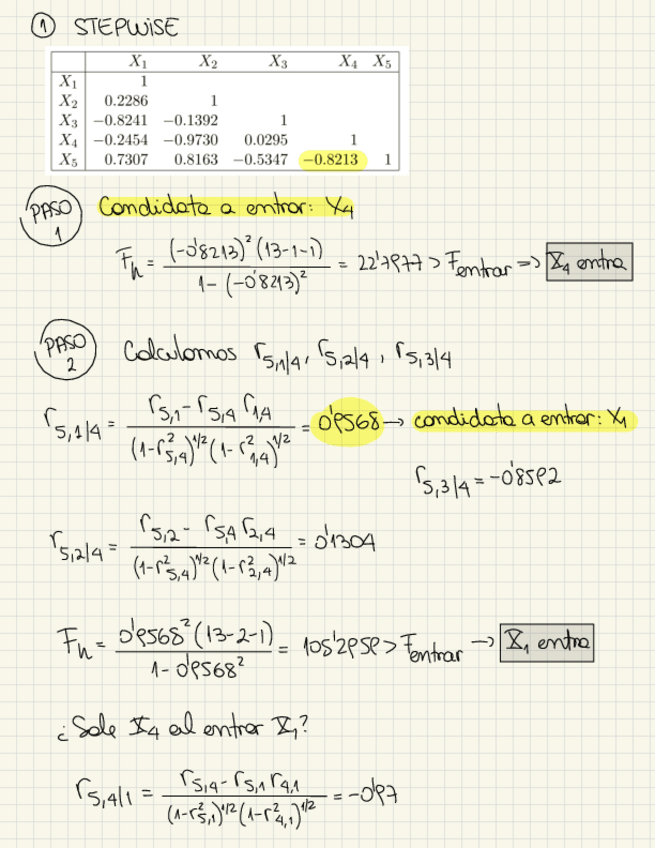 ① STEPWISE
X₁ X₂ X₃ X₄ X₅
X₁ 1
X₂ 0.2286 1
X₃ −0.8241 −0.1392 1
X₄ −0.2454 −0.9730 0.0295 1
X₅ 0.7307 0.8163 −0.5347 −0.8213 1
PASO 1 Candidata a entrar: X₄
Fₕ = (−0'8213)² (13-1-1) / 1 − (−0'8213)² = 22'7977 > F_entrar => X₄ entra
PASO 2 Calculamos r₅,₁|₄, r₅,₂|₄, r₅,₃|₄
r₅,₁|₄ = r₅,₁ − r₅,₄ r₁,₄ / (1−r²₅,₄)^1/2 (1−r²₁,₄)^1/2 = 0'9568 → candidata a entrar: X₁
r₅,₃|₄ = −0'8592
r₅,₂|₄ = r₅,₂ − r₅,₄ r₂,₄ / (1−r²₅,₄)^1/2 (1−r²₂,₄)^1/2 = 0'1304
Fₕ = 0'9568² (13-2-1) / 1 − 0'9568² = 108'2959 > F_entrar → X₁ entra
¿Sale X₄ al entrar X₁?
r₅,₄|₁ = r₅,₄ − r₅,₁ r₄,₁ / (1−r²₅,₁)^1/2 (1−r²₄,₁)^1/2 = −0'97